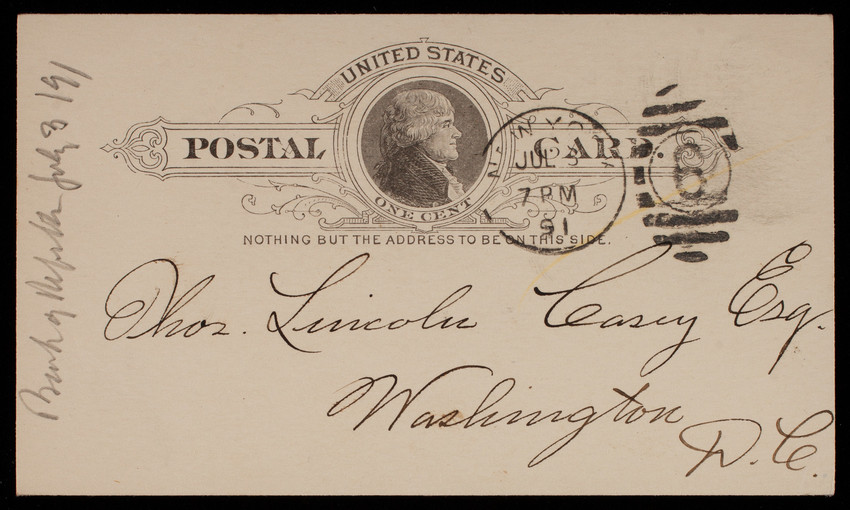 UNITED STATES
POSTAL CARD.
ONE CENT
NOTHING BUT THE ADDRESS TO BE ON THIS SIDE.
NEW YO
JUL
7 PM
91
6
Thos. Lincoln Casey Esq.
Washington
D.C.
Bank of July 3 / 91